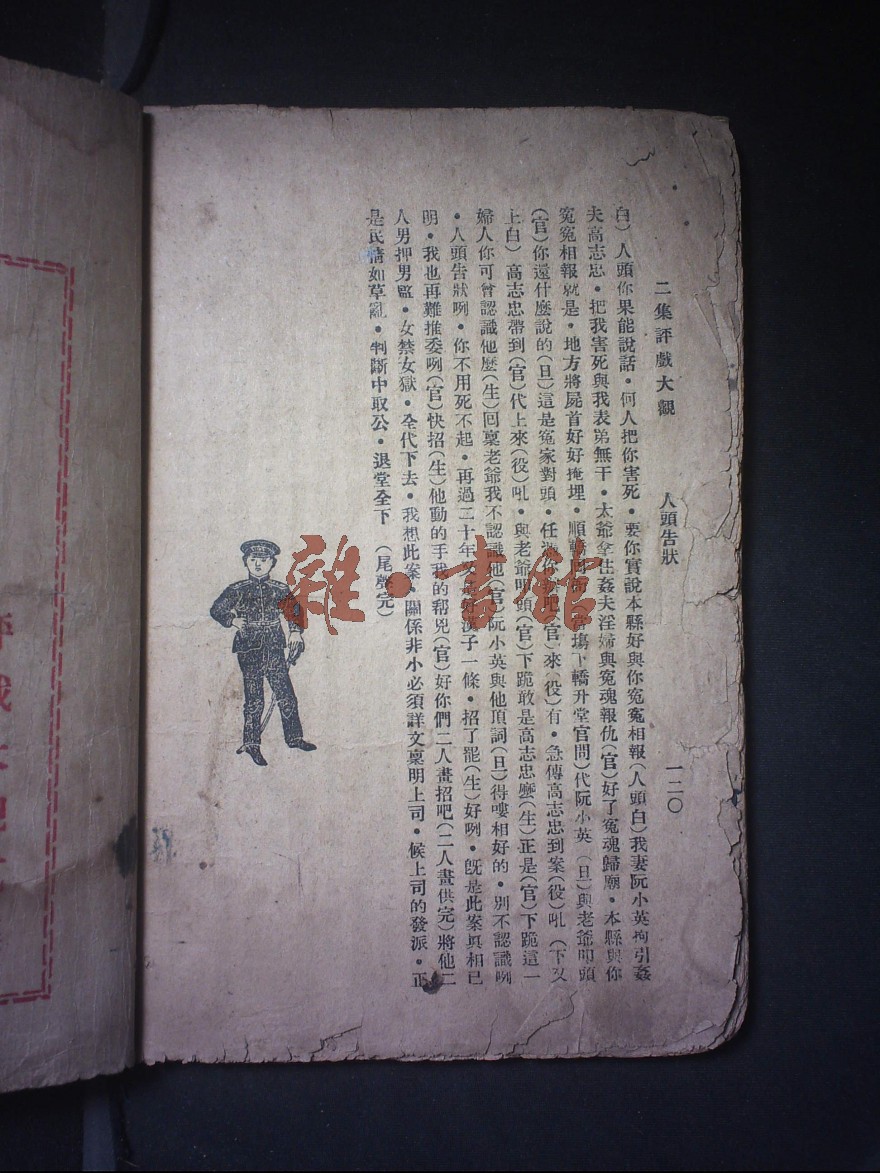 二集評戲大觀 人頭告狀 一二〇
白）人頭你果能說話●何人把你害死●要你實說本縣好與你寃寃相報（人頭白）我妻阮小英拘引姦
夫高志忠●把我害死與我表弟無干●太爺拿住姦夫淫婦與寃魂報仇（官）好了寃魂歸廟●本縣與你
寃寃相報就是●地方將屍首好好掩埋●順轎回衙（官塲下轎升堂官問）代阮小英（旦）與老爺叩頭
（官）你還什麼說的（旦）這是寃家對頭●任（官）來（役）有●急傳高志忠到案（役）吼（下又
上白）高志忠帶到（官）代上來（役）吼●與老爺叩頭（官）下跪敢是高志忠麽（生）正是（官）下跪這一
婦人你可曾認識他麽（生）回稟老爺我不認識他（官）阮小英與他頂詞（旦）得嘍相好的●別不認識咧
●人頭告狀咧●你不用死不起●再過二十年又是好漢子一條●招了罷（生）好咧●旣是此案眞相已
明●我也再難推委咧（官）快招（生）他動的手我的幫兇（官）好你們二人畫招吧（二人畫供完）將他二
人男押男監●女禁女獄●全代下去●我想此案●關係非小必須詳文稟明上司●候上司的發派●正
是民情如草亂●判斷中取公●退堂全下 （尾聲完）
雜·書館